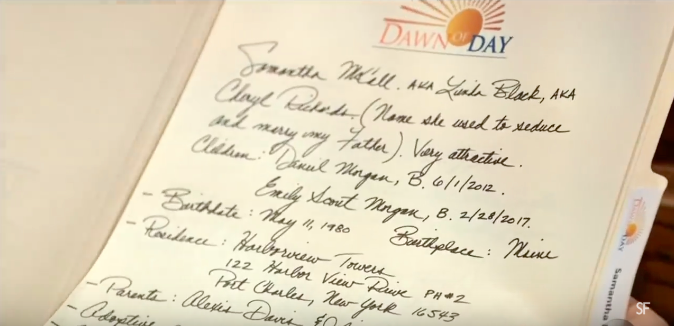 DAWN OF DAY
Samantha McCall. AKA Linda Black, AKA
Cheryl Richards. (Name she used to seduce
and marry my Father). Very attractive.
Children: Daniel Morgan, B. 6/1/2012.
Emily Scout Morgan, B. 2/28/2017.
- Birthdate: May 11, 1980 Birthplace: Maine
- Residence: Harborview Towers
122 Harbor View Drive PH#2
Port Charles, New York 16543
- Parents: Alexis Davis &
- Adoptive
DAY
Samantha
SF